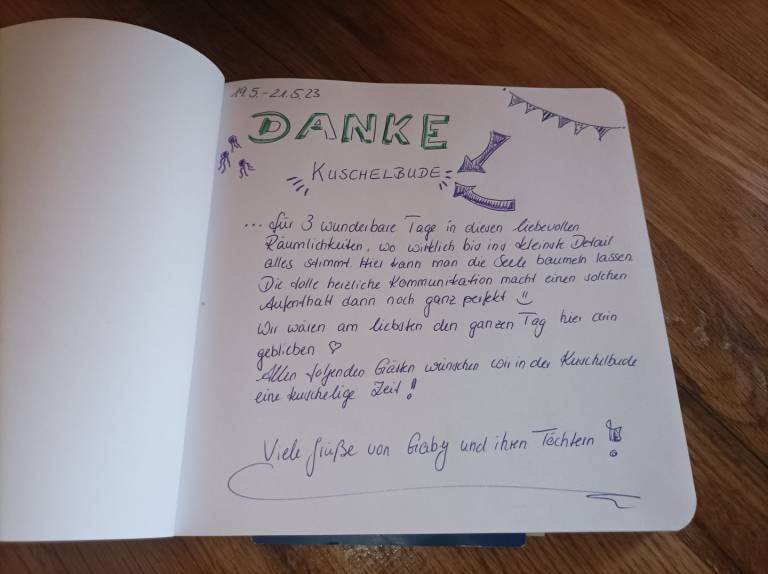 19.5.-21.5.23
DANKE
KUSCHELBUDE
... für 3 wunderbare Tage in diesen liebevollen
Räumlichkeiten, wo wirklich bis ins kleinste Detail
alles stimmt. Hier kann man die Seele baumeln lassen
Die tolle herzliche Kommunikation macht einen solchen
Aufenthalt dann noch ganz perfekt
Wir wären am liebsten den ganzen Tag hier drin
geblieben ♡
Allen folgenden Gästen wünschen wir in der Kuschelbude
eine kuschelige Zeit!
Viele Grüße von Gaby und ihren Töchtern!